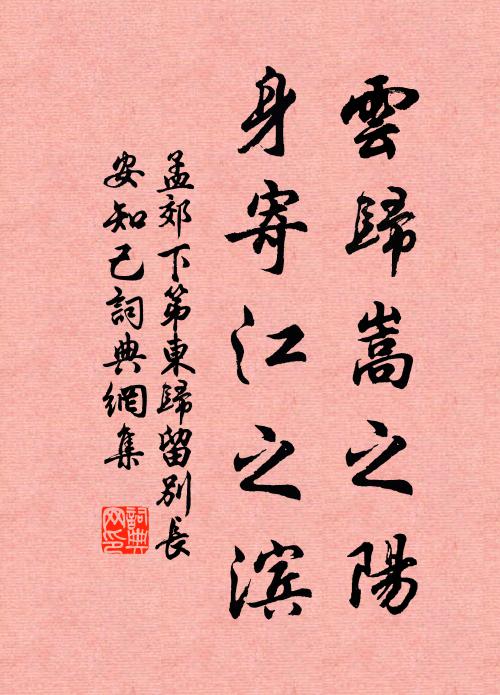 雲歸嵩之陽
身寄江之滨
孟郊下第東歸留別長
安知己詞典網集
詞典
网印